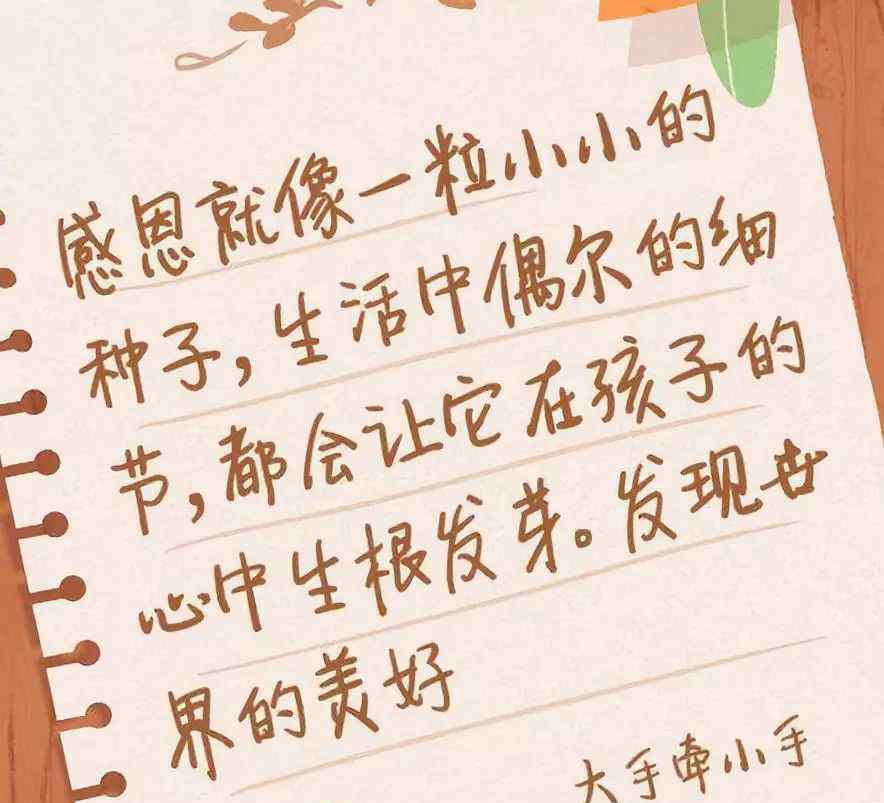 感恩就像一粒小小的
种子，生活中偶尔的细
节，都会让它在孩子的
心中生根发芽。发现世
界的美好
大手牵小手